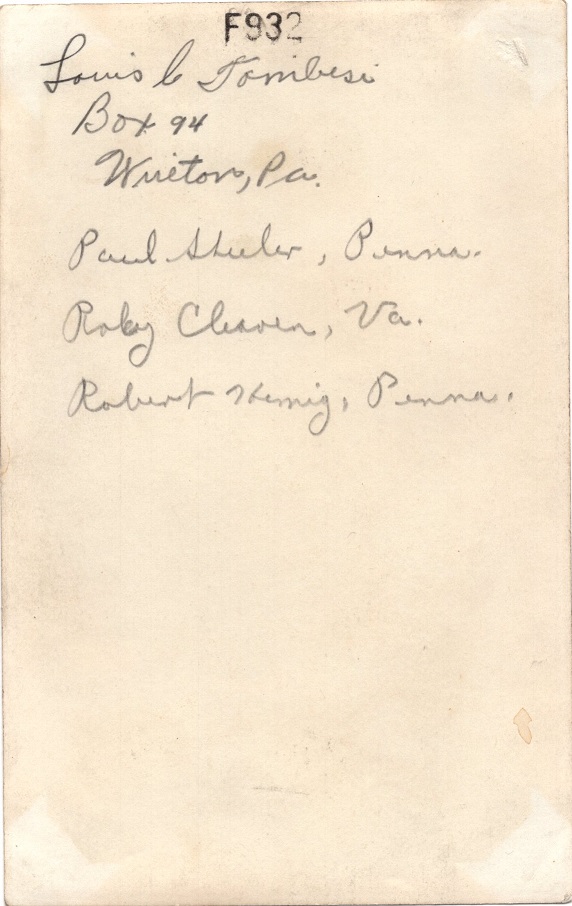 F932
Louis C Tombesi
Box 94
Pa.
Paul Sheeler, Penna.
Roby Cleaven, Va.
Robert Hemig, Penna.